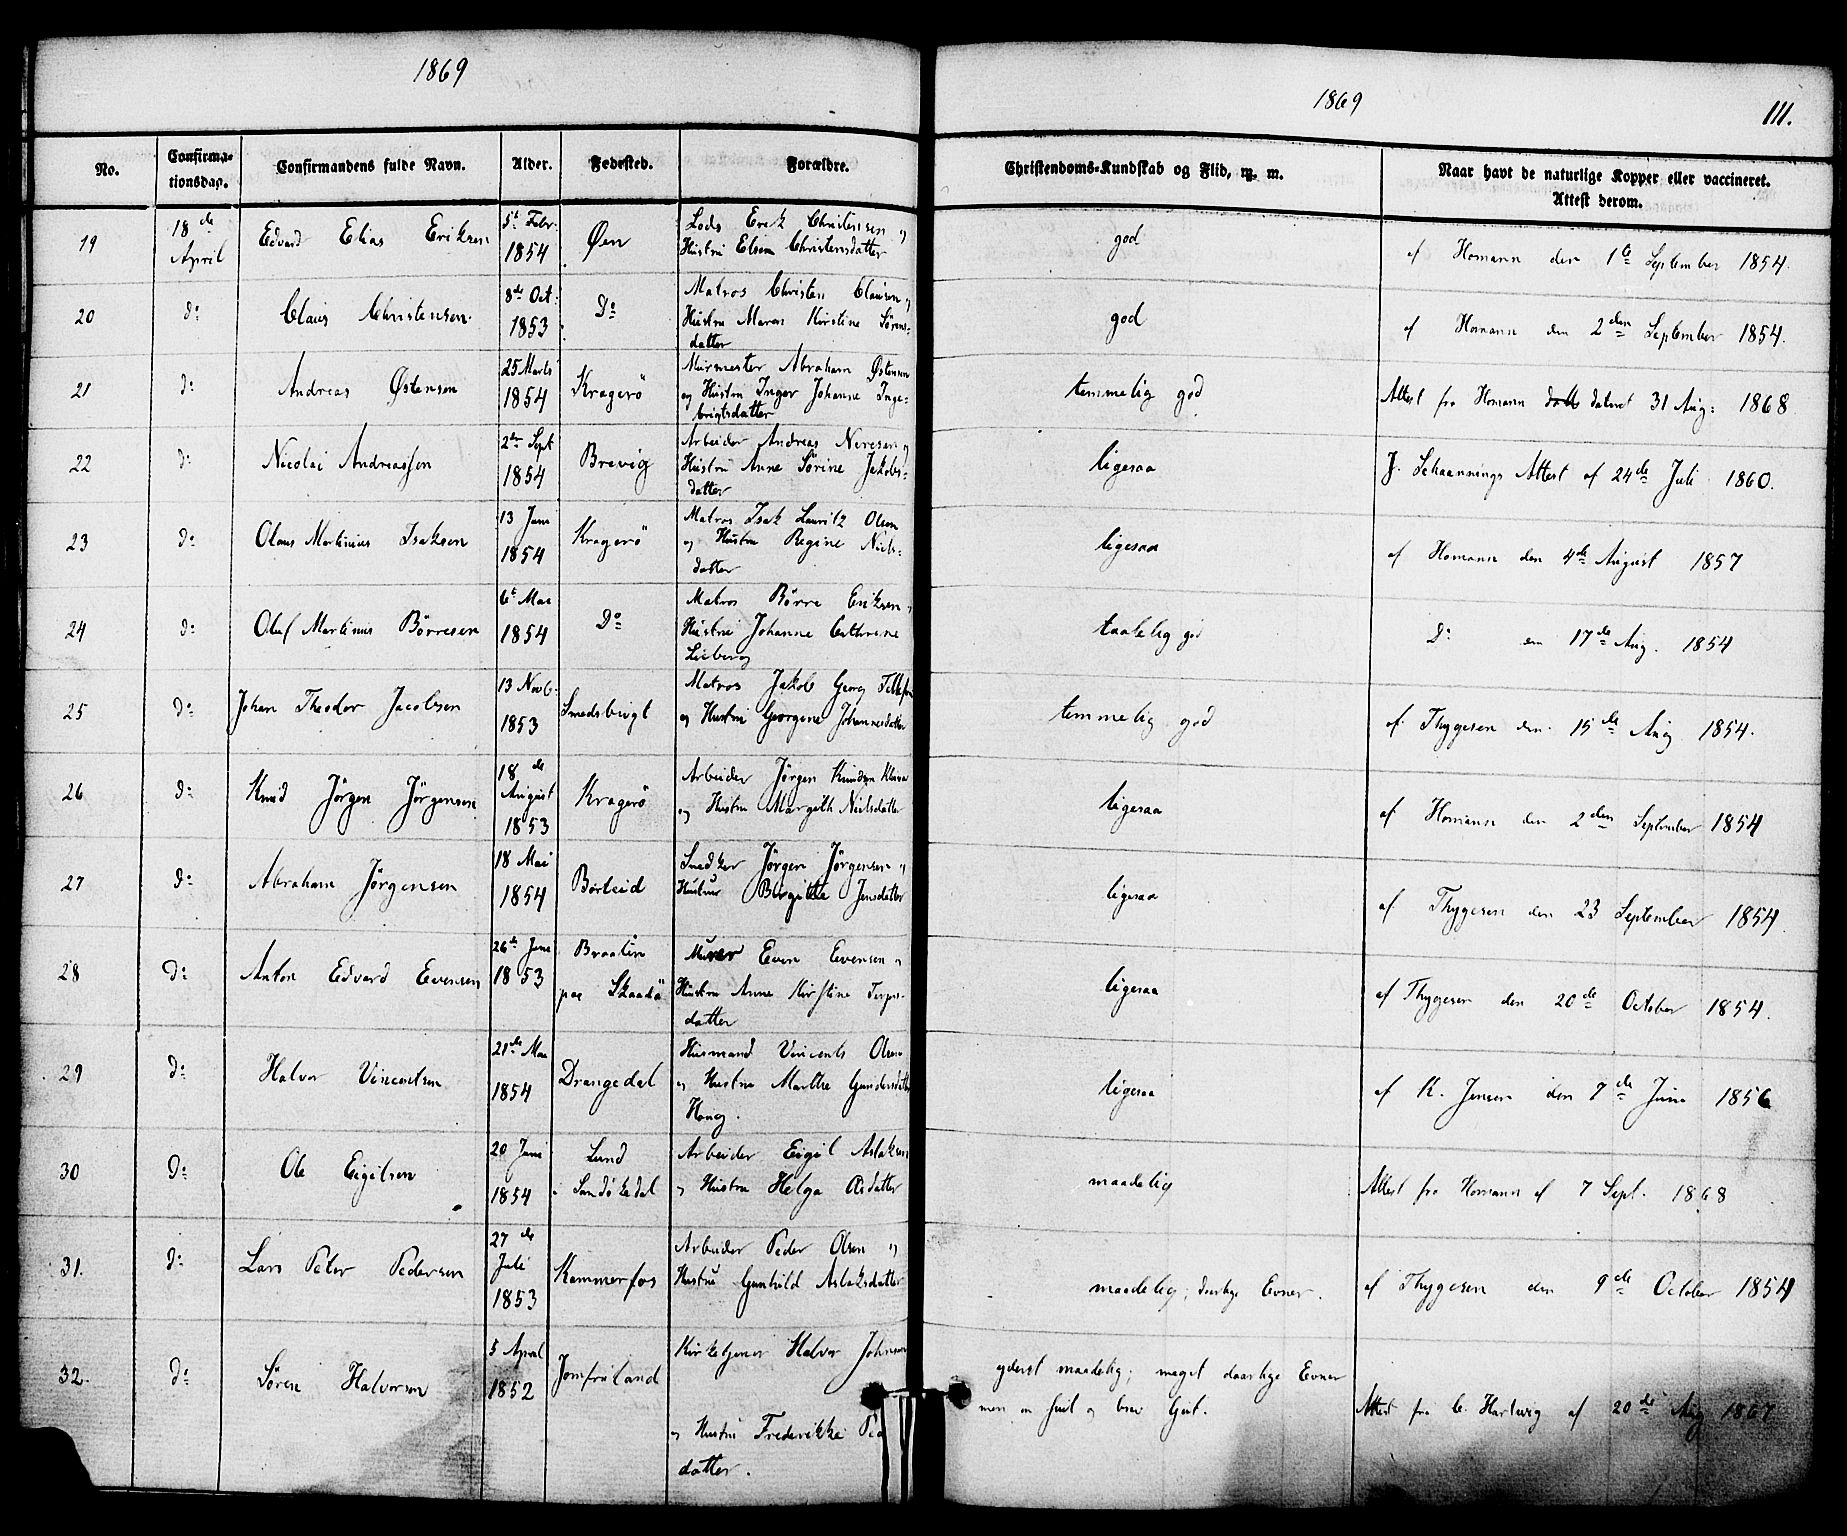 1869
No.
Confirma-
tionsdag.
Confirmandens fulde Navn.
Alder.
Fødested.
Forældre.
19
18de April
Edvard Elias Eriksen
5t Febr. 1854
Øen
Lods Erik Christensen og
Hustru Elsine Christensdatter
20
do
Claus Christensen
8de Oct: 1853
Do
Matros Christen Clausen og
Hustru Maren Kirstine Sørens-
datter
21
do
Andreas Østensen
25 Marts 1854
Kragerö
Murmester Abraham Østensen
og Hustru Inger Johanne Inge-
brigtsdatter
22
do
Nicolai Andreassen
2den Sept 1854
Brevig
Arbeider Andreas Neresen og
Hustru Anne Sörine Jakobs-
datter
23
do
Olaus Martinius Isaksen
13 Juni 1854
Kragerö
Matros Isak Lauritz Olsen
og Hustru Regine Niels-
datter
24
do
Oluf Martinius Börresen
6t Mai 1854
Do
Matros Börre Eriksen og
Hustru Johanne Cathrine
Lieberg
25
do
Johan Theodor Jacobsen
13 Novb. 1853
Smedsbugt
Matros Jakob Georg
og Hustru Georgine Johannesdatter
26
do
Knud Jörgen Jörgensen
18de August 1853
Kragerö
Arbeider Jörgen Knudsen
og Hustru Margith Nielsdatter
27
do
Abraham Jörgensen
18 Mai 1854
Börteid
Snedker Jörgen Jörgensen og
Hustru Birgitte Jensdatter
28
do
Anton Edvard Evensen
26de Juni 1853
Braaten
paa Skaadö
Murer Even Evensen og
Hustru Anne Kirstine Terjes-
datter
29
do
Halvor Vincentsen
21de Mai 1854
Drangedal
Husmand Vincents Olsen
og Hustru Marthe Gundersdatter
Haug.
30
do
Ole Eigilsen
20 Juni 1854
Lund
i Sandökedal
Arbeider Eigil Aslaksen
og Hustru Helga Olsdatter
31.
do
Lars Peter Pedersen
27de Juli 1853
Kammerfos
Arbeider Peder Olsen og
Hustru Gunhild Aslaksdatter
32.
do
Sören Halvorsen
5 April 1852
Jomfruland
Kirketjener Halvor Johnsen
og Hustru Frederikke
datter.
1869
111.
Christendoms-Kundskab og Flid, m. m.
Naar havt de naturlige Kopper eller vaccineret.
Attest derom.
god
af Homann den 1te September 1854.
god
af Homann den 2den September 1854.
temmelig god
Attest fra Homann dateret 31 Aug: 1868
ligesaa
J. Schaannings Attest af 24de Juli 1860.
ligesaa
af Homann den 4de August 1857
taalelig god
Do den 17de Aug. 1854
temmelig god
af Thygesen den 15de Aug 1854.
ligesaa
af Homann den 2den September 1854
ligesaa
af Thygesen den 23 September 1854
ligesaa
af Thygesen den 20de October 1854.
ligesaa
af K. Jensen den 7de Juni 1856
maadelig
Attest fra Homann af 7 Sept. 1868
maadelig; daarlige Evner.
af Thygesen den 9de October 1854
yderst maadelig; meget daarlige Evner
men en snil og brav Gut.
Attest fra C. Hartwig af 20de Aug 1867